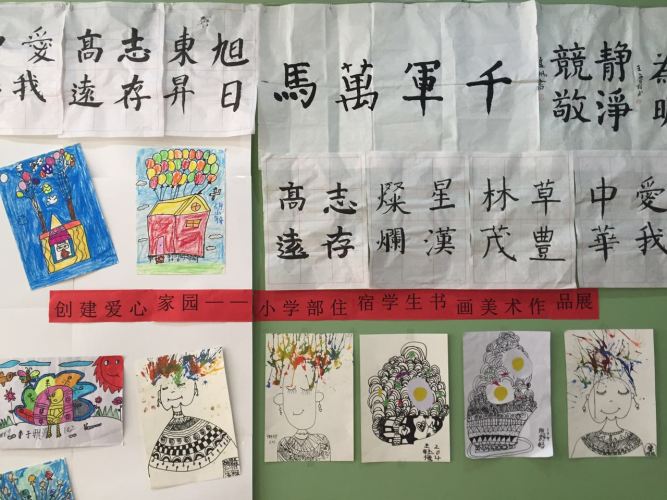 旭日
東昇
志存
髙遠
愛我
千軍萬馬
静淨
競敬
愛我
中華
草豐
林茂
星漢
燦爛
志存
髙遠
创建爱心家园——小学部住宿学生书画美术作品展